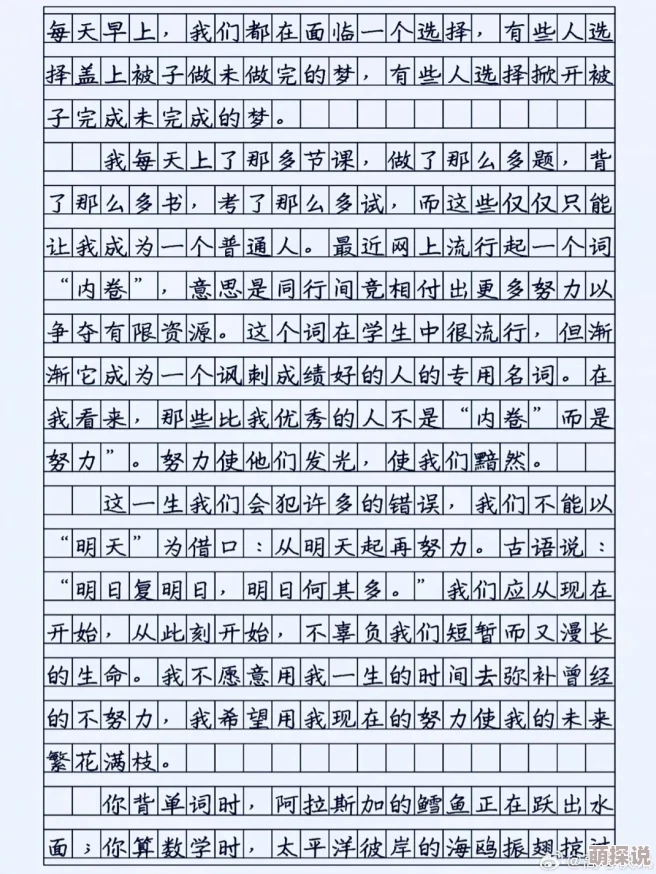 每天早上，我们都在面临一个选择，有些人选
择盖上被子做未做完的梦，有些人选择掀开被
子完成未完成的梦。
我每天上了那多节课，做了那么多题，背
了那么多书，考了那么多试，而这些仅仅只能
让我成为一个普通人。最近网上流行起一个词
“内卷”，意思是同行间竞相付出更多努力以
争夺有限资源。这个词在学生中很流行，但渐
渐它成为一个讽刺成绩好的人的专用名词。在
我看来，那些比我优秀的人不是“内卷”而是
努力”。努力使他们发光，使我们黯然。
这一生我们会犯许多的错误，我们不能以
“明天”为借口：从明天起再努力。古语说：
“明日复明日，明日何其多。”我们应从现在
开始，从此刻开始，不辜负我们短暂而又漫长
的生命。我不愿意用我一生的时间去弥补曾经
的不努力，我希望用我现在的努力使我的未来
繁花满枝。
你背单词时，阿拉斯加的鳕鱼正在跃出水
面；你算数学时，太平洋彼岸的海鸥振翅掠过
萌探说